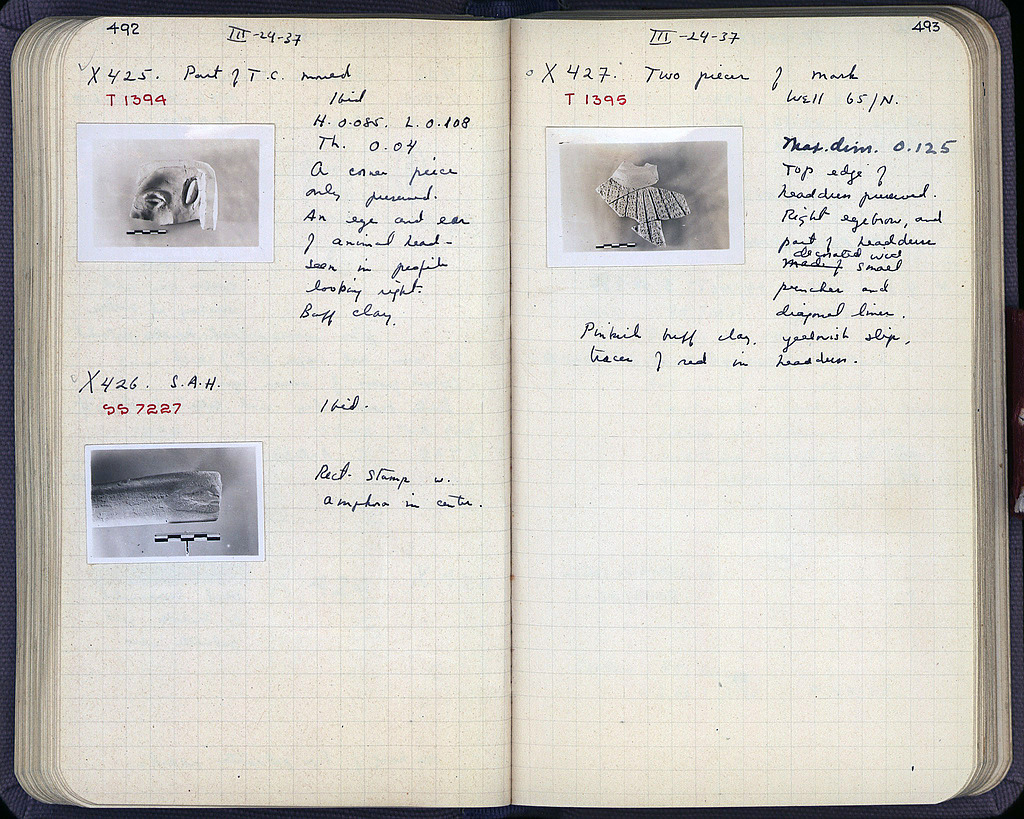 492
III-24-37
X 425. Part of T.C. mould
T 1394
Ibid
H. 0.085. L. 0.108
Th. 0.04
A corner piece
only preserved.
An eye and ear
of animal head -
seen in profile
looking right.
Buff clay.
X 426. S.A.H.
SS 7227
Ibid.
Rect. stamp w.
amphora in center.
493
III-24-37
X 427. Two pieces of mask
T 1395
Well 65/N.
Max. dim. 0.125
Top edge of
headdress preserved.
Right eyebrow, and
part of headdress
decorated with
made of small
punches and
diagonal lines.
Pinkish buff clay, yellowish slip,
traces of red in headdress.